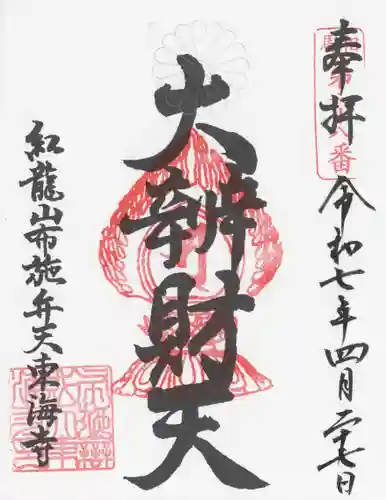 奉拝
令和七年四月二十七日
大辨財天
紅龍山布施弁天東海寺